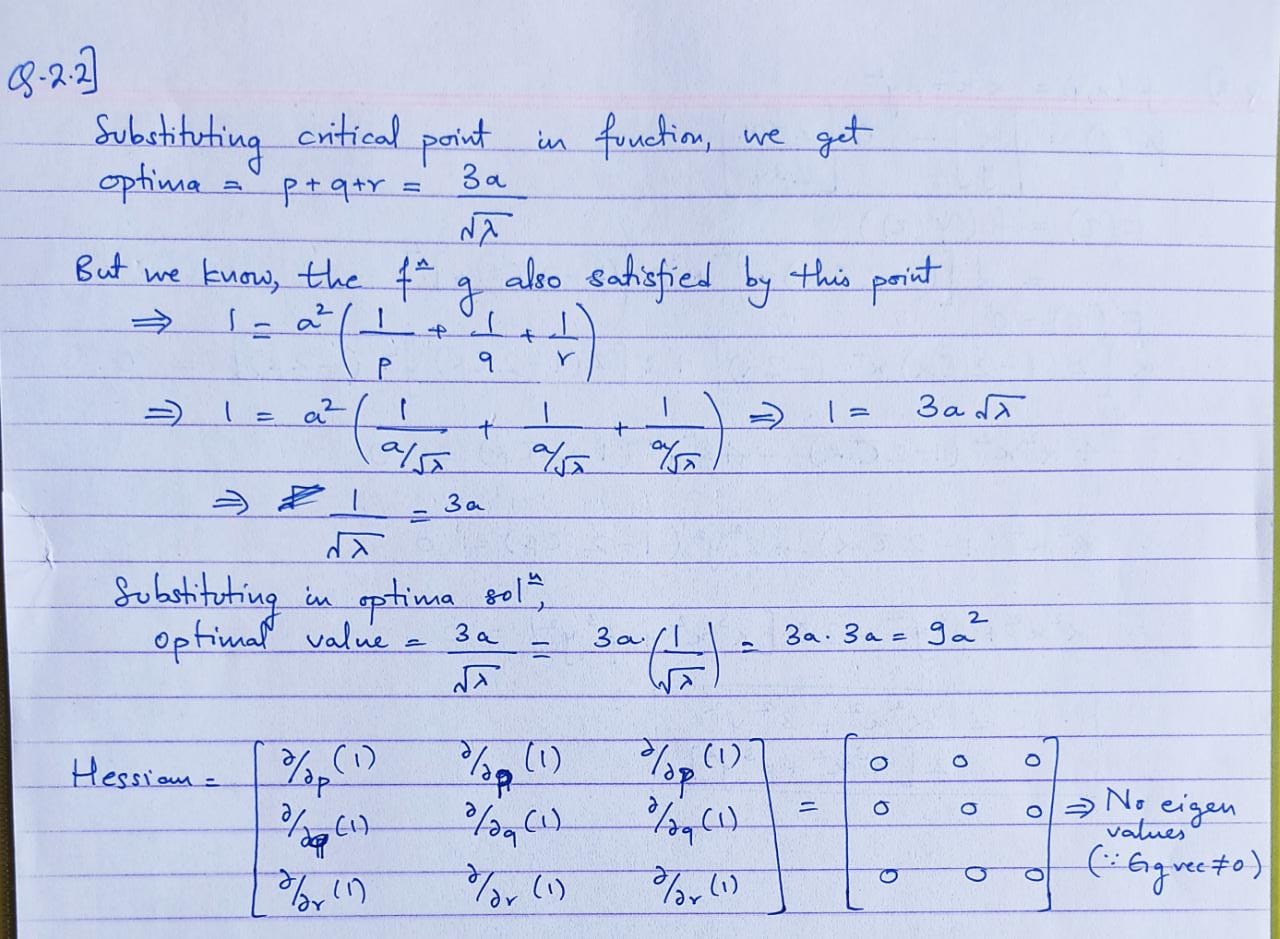 Q-2.2]
Substituting critical point in function, we get
optima = p+q+r = 3a/√λ
But we know, the fⁿ g also satisfied by this point
⇒ 1 = a² (1/p + 1/q + 1/r)
⇒ 1 = a² (1/(a/√λ) + 1/(a/√λ) + 1/(a/√λ)) ⇒ 1 = 3a√λ
⇒ 1/√λ = 3a
Substituting in optima solⁿ,
optimal value = 3a/√λ = 3a·(1/√λ) = 3a·3a = 9a²
Hessian = [∂/∂p (1) ∂/∂p (1) ∂/∂p (1)] = [0 0 0]
[∂/∂q (1) ∂/∂q (1) ∂/∂q (1)] [0 0 0] ⇒ No eigen values
[∂/∂r (1) ∂/∂r (1) ∂/∂r (1)] [0 0 0] (∵ Eig vec ≠ 0)